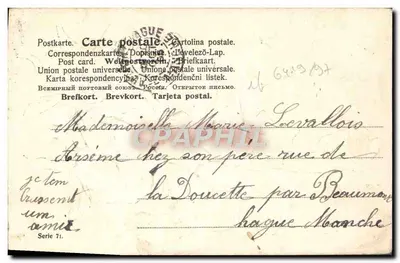 Postkarte. Carte postale. Cartolina postale.
Correspondenzkarte. Dopisnice. Levelezö-Lap.
Post card. Weltpostverein. Briefkaart.
Union postale universelle. Unione postale universale.
Karta korespondencyjna. Korespondenční lístek.
Всемірный почтовый союзъ. Россія. Открытое письмо.
Brefkort. Brevkort. Tarjeta postal.
HAGUE
6419/97
Mademoiselle Marie Levallois
Arséme chez son pere rue de
la Doucette par Beaumont
hague Manche
je ton
un
amie
Serie 71.